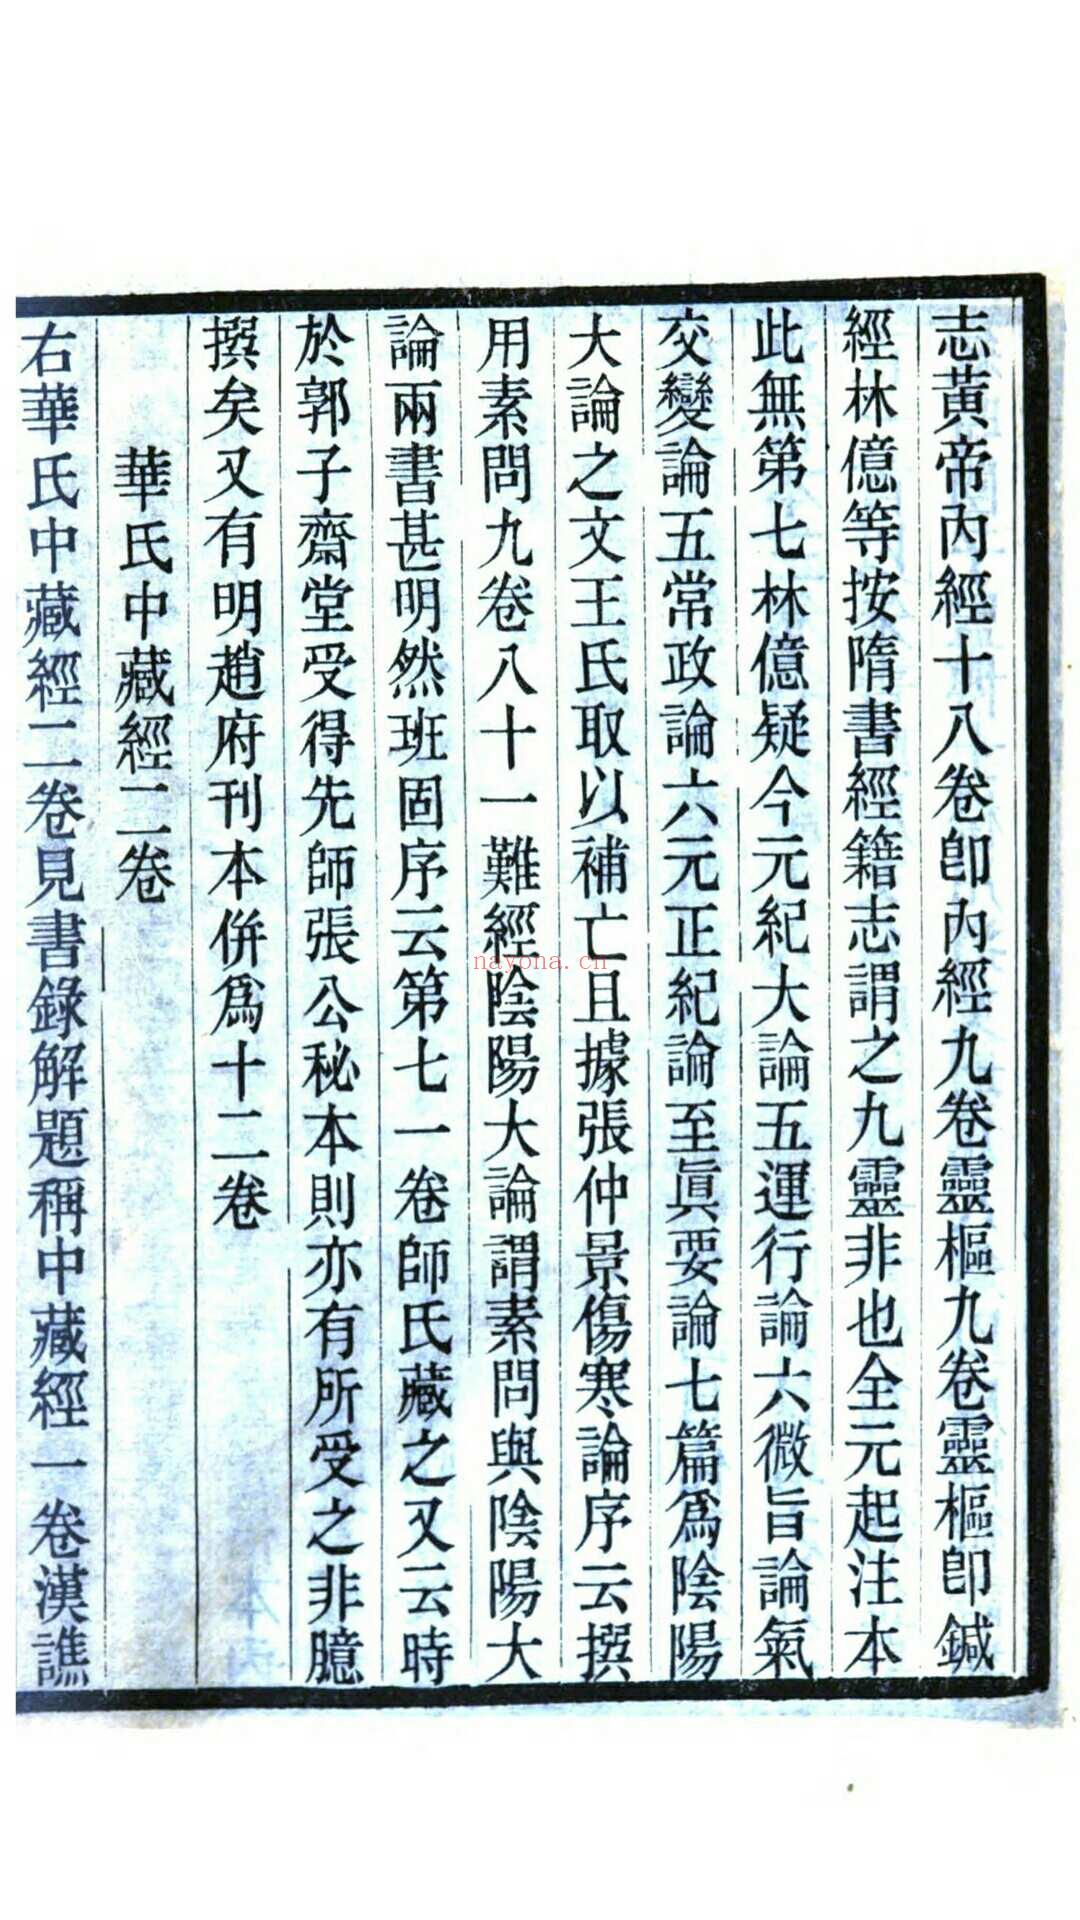 志黃帝內經十八卷卽內經九卷靈樞九卷靈樞卽鍼
經林億等按隋書經籍志謂之九靈非也全元起注本
此無第七林億疑今元紀大論五運行論六微旨論氣
交變論五常政論六元正紀論至眞要論七篇爲陰陽
大論之文王氏取以補亡且據張仲景傷寒論序云撰
用素問九卷八十一難經陰陽大論謂素問與陰陽大
論兩書甚明然班固序云第七一卷師氏藏之又云時
於郭子齋堂受得先師張公秘本則亦有所受之非臆
撰矣又有明趙府刊本併爲十二卷
華氏中藏經二卷
右華氏中藏經二卷見書錄解題稱中藏經一卷漢譙
nayona.cn